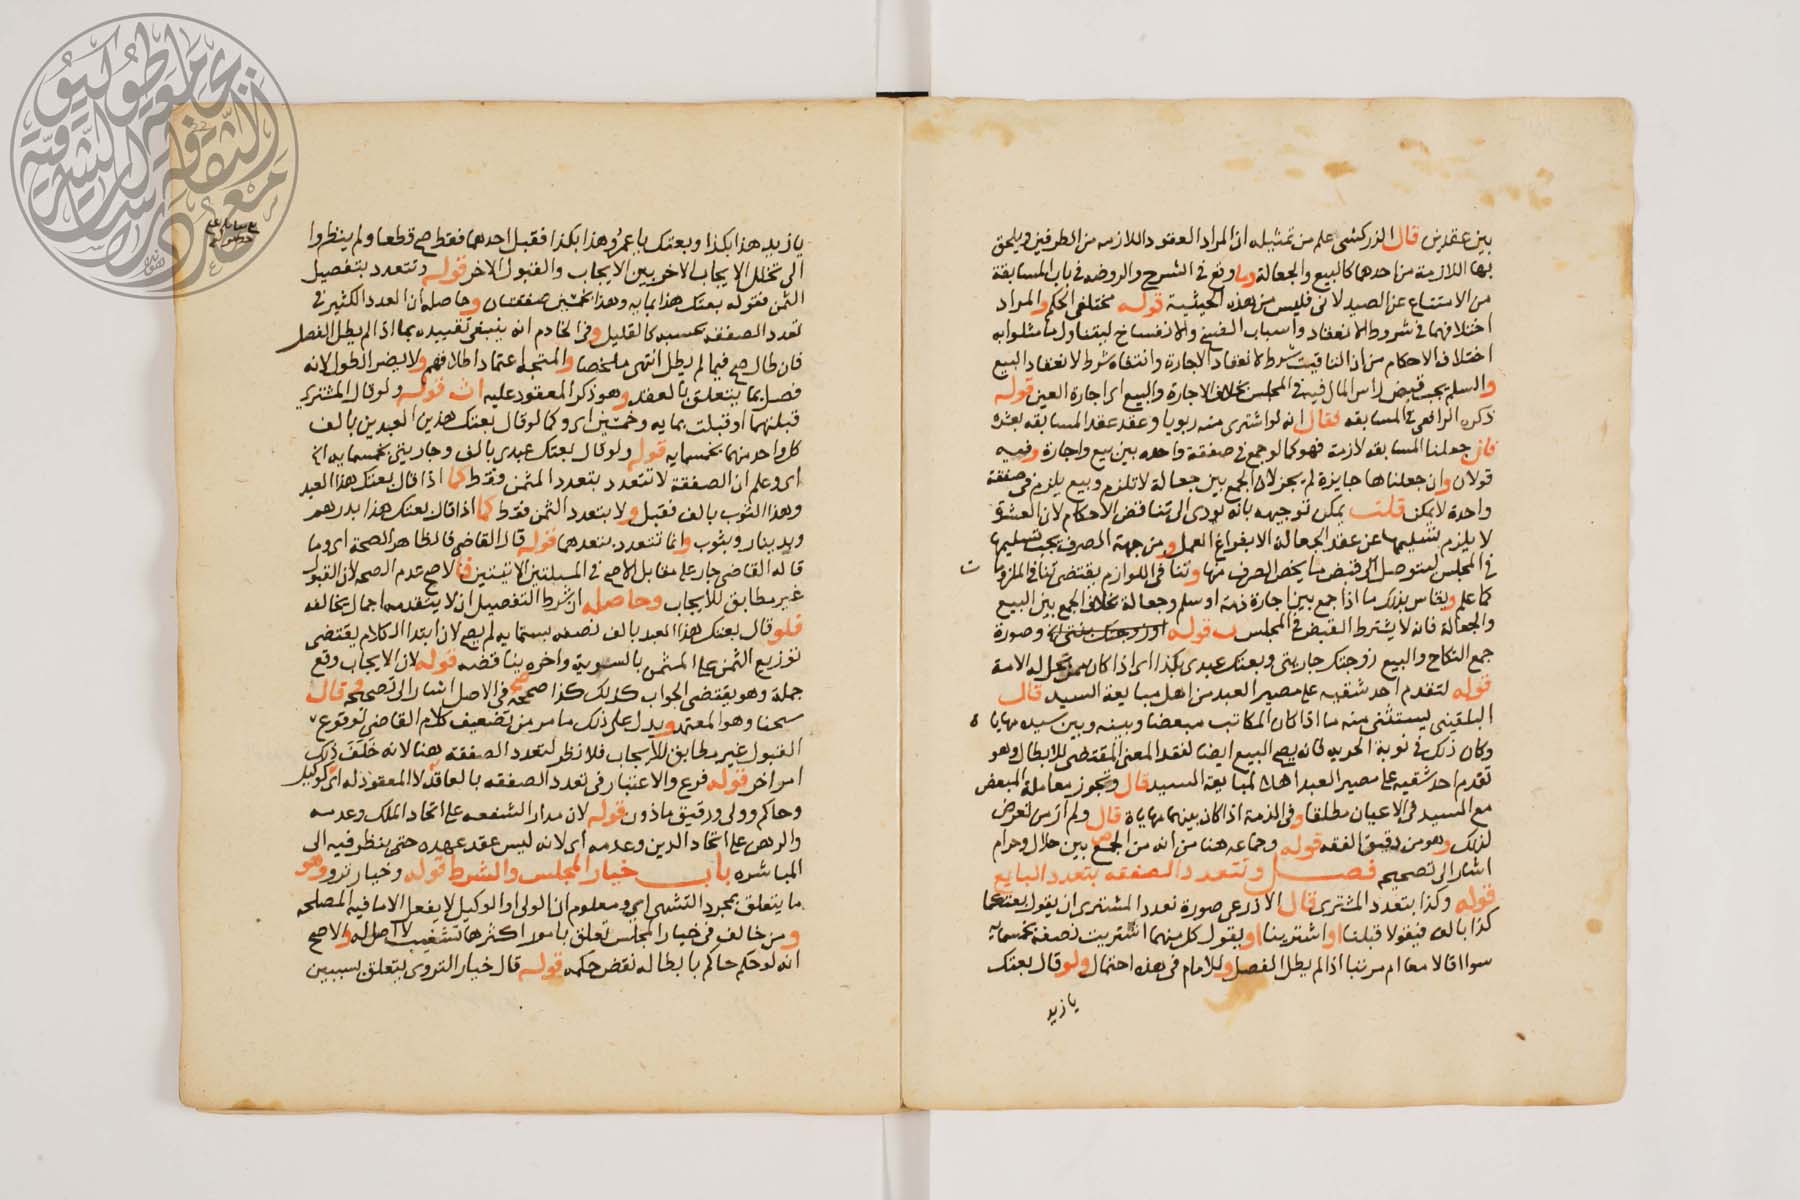 بين عقدين قال الزركشي علم من تمثيله ان المراد العقود اللازمه من الطرفين ويلحق
بها اللازمة من احدهما كالبيع والجعالة وما وقع في الشرح والروضه في باب المسابقة
من الامتناع عن الصيدلاني فليس من هذه الحيثية قوله مختلفي الحكم والمراد
اختلافهما في شروط الانعقاد واسباب الفسخ والانفساخ ليتناول ما مثلوا به
اختلاف الاحكام من اذ التاقيت شرط لانعقاد الاجارة وانتفاه شرط لانعقاد البيع
والسلم يجب قبض راس المال فيه في المجلس بخلاف الاجارة والبيع اي اجارة العين قوله
ذكره الرافعي في المسابقه فقال انه لو اشترى منه ربويا وعقد عقد المسابقه بعشرة
فان جعلنا المسابقه لازمة فهو كما لو جمع في صفقة واحده بين بيع واجارة وفيه
قولان وان جعلناها جايزة لم يجز لان الجمع بين جعالة لا تلزم وبيع يلزم في صفقة
واحدة لا يمكن قلت يمكن توجيهه بانه يودى الى تناقض الاحكام لان العشرة
لا يلزم تسليمها عن عقد الجعالة الا بفراغ العمل ومن جهة الصرف يجب تسليمها
في المجلس ليتوصل الى قبض ما يخص الصرف منها وتنافي اللوازم يقتضي تنافي الملزومات
كما علم ويقاس بذلك ما اذا جمع بين اجارة ذمة او سلم وجعالة بخلاف الجمع بين البيع
والجعالة فانه لا يشترط القبض في المجلس قوله او زوجتك بنتي وصورة
جمع النكاح والبيع زوجتك جاريتي وبعتك عبدي بكذا اي اذا كان ممن تحل له الامة
قوله لتقدم احد شقيه على مصير العبد من اهل مبايعة السيد قال
البلقيني يستثنى منه ما اذا كان المكاتب مبعضا وبينه وبين سيده مهاياه
وكان ذلك في نوبة الحرية فانه يصح البيع ايضا لفقد المعنى المقتضي للابطال وهو
تقدم احد شقيه على مصير العبد اهلا لمبايعة السيد قال وتجوز معاملة المبعض
مع السيد في الاعيان مطلقا وفي الذمة اذا كان بينهما مهاياة قال ولم ار من تعرض
لذلك وهو من دقيق الفقه قوله وجماعه هنا من انه من الجمع بين حلال وحرام
اشار الى تصحيحه فصل وتتعدد الصفقه بتعدد البايع
قوله وكذا بتعدد المشتري قال الاذرعي صورة تعدد المشتري ان يقول بعتكما
كذا بالف فيقولا قبلنا او اشترينا او يقول كل منهما اشتريت نصفه بخمسمايه
سوا قالا معا ام مرتبا اذا لم يطل الفصل وللامام في هذه احتمال ولو قال بعتك
يا زيد
يا زيد هذا بكذا وبعتك يا عمرو هذا بكذا فقبل احدهما فقط صح قطعا ولم ينظروا
الى تخلل الايجاب الاخر بين الايجاب والقبول الاخر قوله وتتعدد بتفصيل
الثمن فقوله بعتك هذا بمايه وهذا بخمسين صفقتان وحاصله ان العدد الكثير في
تعدد الصفقه بحسبه كالقليل وفي الخادم انه ينبغي تقييده بما اذا لم يطل الفصل
فان طال صح فيما لم يطل انتهى ملخصا والمتجه اعتماد اطلاقهم ولا يضر الطول لانه
فصل بما يتعلق بالعقد وهو ذكر المعقود عليه قوله ولو قال المشتري
قبلتهما او قبلت بمايه وخمسين اي وكما لو قال بعتك هذين العبدين بالف
كل واحد منهما بخمسمايه قوله ولو قال بعتك عبدي بالف وجاريتي بخمسمايه الخ
اي وعلم ان الصفقة لا تتعدد بتعدد المثمن فقط كما اذا قال بعتك هذا العبد
وهذا الثوب بالف فقبل ولا بتعدد الثمن فقط كما اذا قال بعتك هذا بدرهم
وبدينار وبثوب وانما تتعدد بتعدهما قوله قال القاضي فالظاهر الصحة اي وما
قاله القاضي جار على مقابل الاصح في المسيلتين الاتيتين فالاصح عدم الصحه لان القبول
غير مطابق للايجاب وحاصله ان شرط التفصيل ان لا يتقدمه اجمال يخالفه
فلو قال بعتك هذا العبد بالف نصفه بستمايه لم يصح لان ابتدا الكلام يقتضي
توزيع الثمن على المثمن بالسوية واخره يناقضه قوله لان الايجاب وقع
جملة وهو يقتضي الجواب كذلك كذا صححه في الاصل اشار الى تصحيحه قال
شيخنا وهو المعتمد ويدل على ذلك ما مر من تضعيف كلام القاضي لوقوع
القبول غير مطابق للايجاب فلا نظر لتعدد الصفقه هنا لانه خلف ذلك
امر اخر قوله فرع والاعتبار في تعدد الصفقه بالعاقد لا المعقود له اي كوكيل
وحاكم وولي ورقيق ماذون قوله لان مدار الشفعه على اتحاد الملك وعدمه
والرهن على اتحاد الدين وعدمه اي لانه ليس عقد عهده حتى ينظر فيه الى
المباشره باب خيار المجلس والشرط قوله وخيار ترو وهو
ما يتعلق بمجرد التشهي اي ومعلوم ان الولي او الوكيل لا يفعل الا ما فيه المصلحه
ومن خالف في خيار المجلس تعلق بامور اكثرها تشغيب لا اصل له والاصح
انه لو حكم حاكم بابطاله نقض حكمه قوله قال خيار التروي يتعلق بسببين